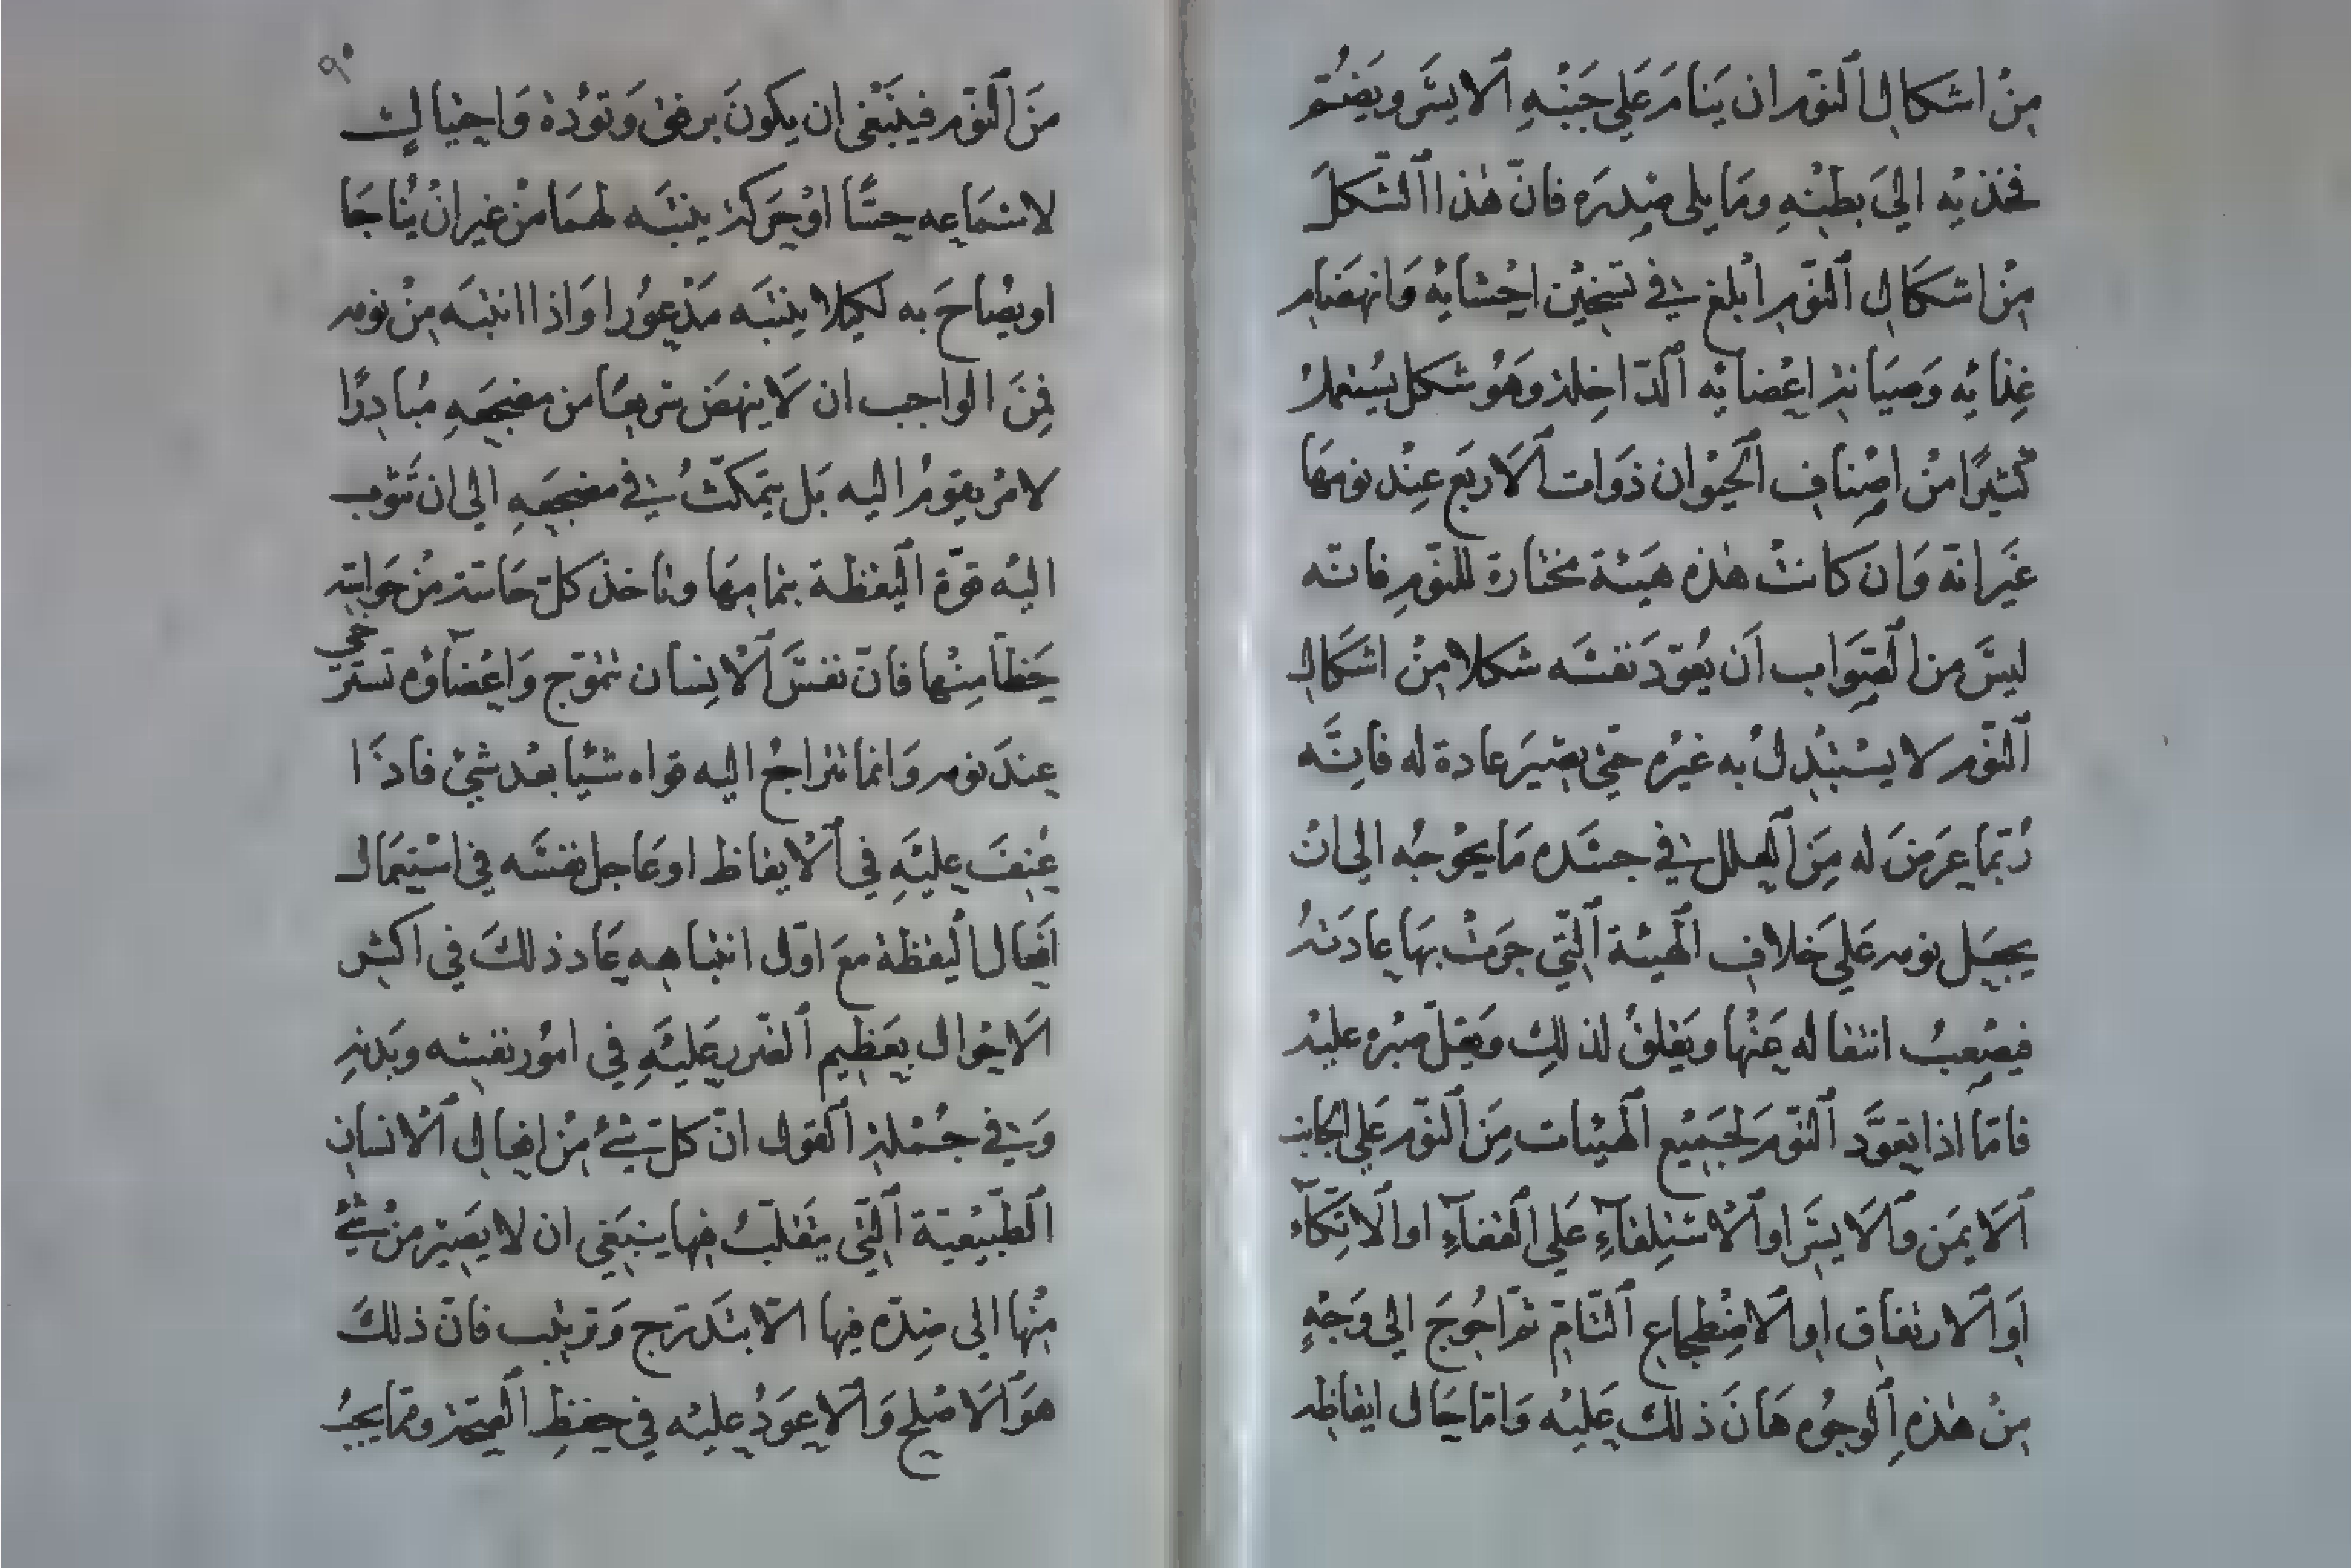 مِنْ اشكال النّوم ان يَنامَ عَلى جَنْبِهِ الايسَر ويَضُمّ
فخذيْه اليَ بطنِهِ ومَا يلى صِدرَه فانّ هٰذا الشّكلَ
مِنْ اشكَال النّوم ابلغ في تسخيْن احْشايْه وَانهضَام
غِذايْه وَصيَانة اعْضايْه الدّاخِلة وهُو شكل يسْتعملُ
كثيْرًا مْن اصْناف الحيْوان ذوَات الاربَع عِنْد نومهَا
غيَر انّه وَان كانتْ هٰذه هيَئة مختارة للنّومِ فانّه
ليسَ من الصَّوَاب اَن يُعَوّدَ نفسَه شكلا مِنْ اشكَال
النّوم لا يسْتبْدِلُ به غيْرُه حَتى يصْيَر عادة له فانّه
رُبّما عرَضَ له مِنَ العلل في جسَده مَا يحْوجُه الى انْ
يجعَل نومه عَلى خلاف الهيْئة الَّتى جرَتْ بهَا عادَتهُ
فيصْعبُ انتقاله عَنْها ويَقلقُ لذلِك ويَقلّ صبْره عليْه
فامّا اذا تعَوَّد النّومَ لجَميْع الهيْئات مِنَ النّوم عَلى الجانب
الايمَن والايسَر او الاسْتلقاءِ عَلى القفاءِ او الاتّكآء
اَو الارتفاق او الاضْطجاع التّامّ ثمّ احُوجَ الى وَجْهٍ
مِنْ هٰذهِ الوجُوه هَانَ ذلك عَليْه وَامّا حَال ايقاظِه
٩٠
مَنَ النّوم فينبَغى ان يكونَ برفق وَتؤُدة وَاحْتيال
لاستمَاعه حِسًّا اوْ حَركة ينتبَه لهمَا مْن غير انْ يُناجَا
او يصْاحَ به لكيلا ينتبَه مَذعوُرا وَاذا انتبَه مِنْ نومه
فمِنَ الواجب ان لَا ينهَض سَريعًا من مضجَعِهِ مُبادِرًا
لامْر يقومُ اليه بَل يتمَكّثُ في مضجعَهِ الى ان تثوْب
اليْه قوّة اليَقظة بتمامِهَا وتاخذ كلّ حَاسّة مِنْ حَواسّه
حَظّا مِنْها فانّ نفسَ الاْنِسان تموّج وَاعْضَآؤه تسترخى
عِندَ نومه وَانما تترَاجعُ اليه قواه شيْا بعْد شيْ فاذَا
عُنفَ عليْهِ في الاْيقاظ او عَاجل نفسَه في اسْتعمَال
اَفعَال اليَقظة مَع اوّل انتباهِه عَاد ذلكَ في اكثر
الاحْوال بعَظيمِ الضّرر عَليْهِ في امُور نفسِه وبَدنهِ
وَفي جُمْلة القول انّ كلّ شيْءٌ مْن افعَال الاْنسان
الطّبيْعيّة الّتى يتَقلّبُ فيها ينبَغى ان لا يَصيْر مِنْ شيْءٌ
مْنها الى ضِدّه فيها الاّ بتَدرّج وَترتيْب فانّ ذلكَ
هوَ الاَصْلح وَالاَعوَدُ عليْه في حِفظِ الصّحّة وممّا يجبُ